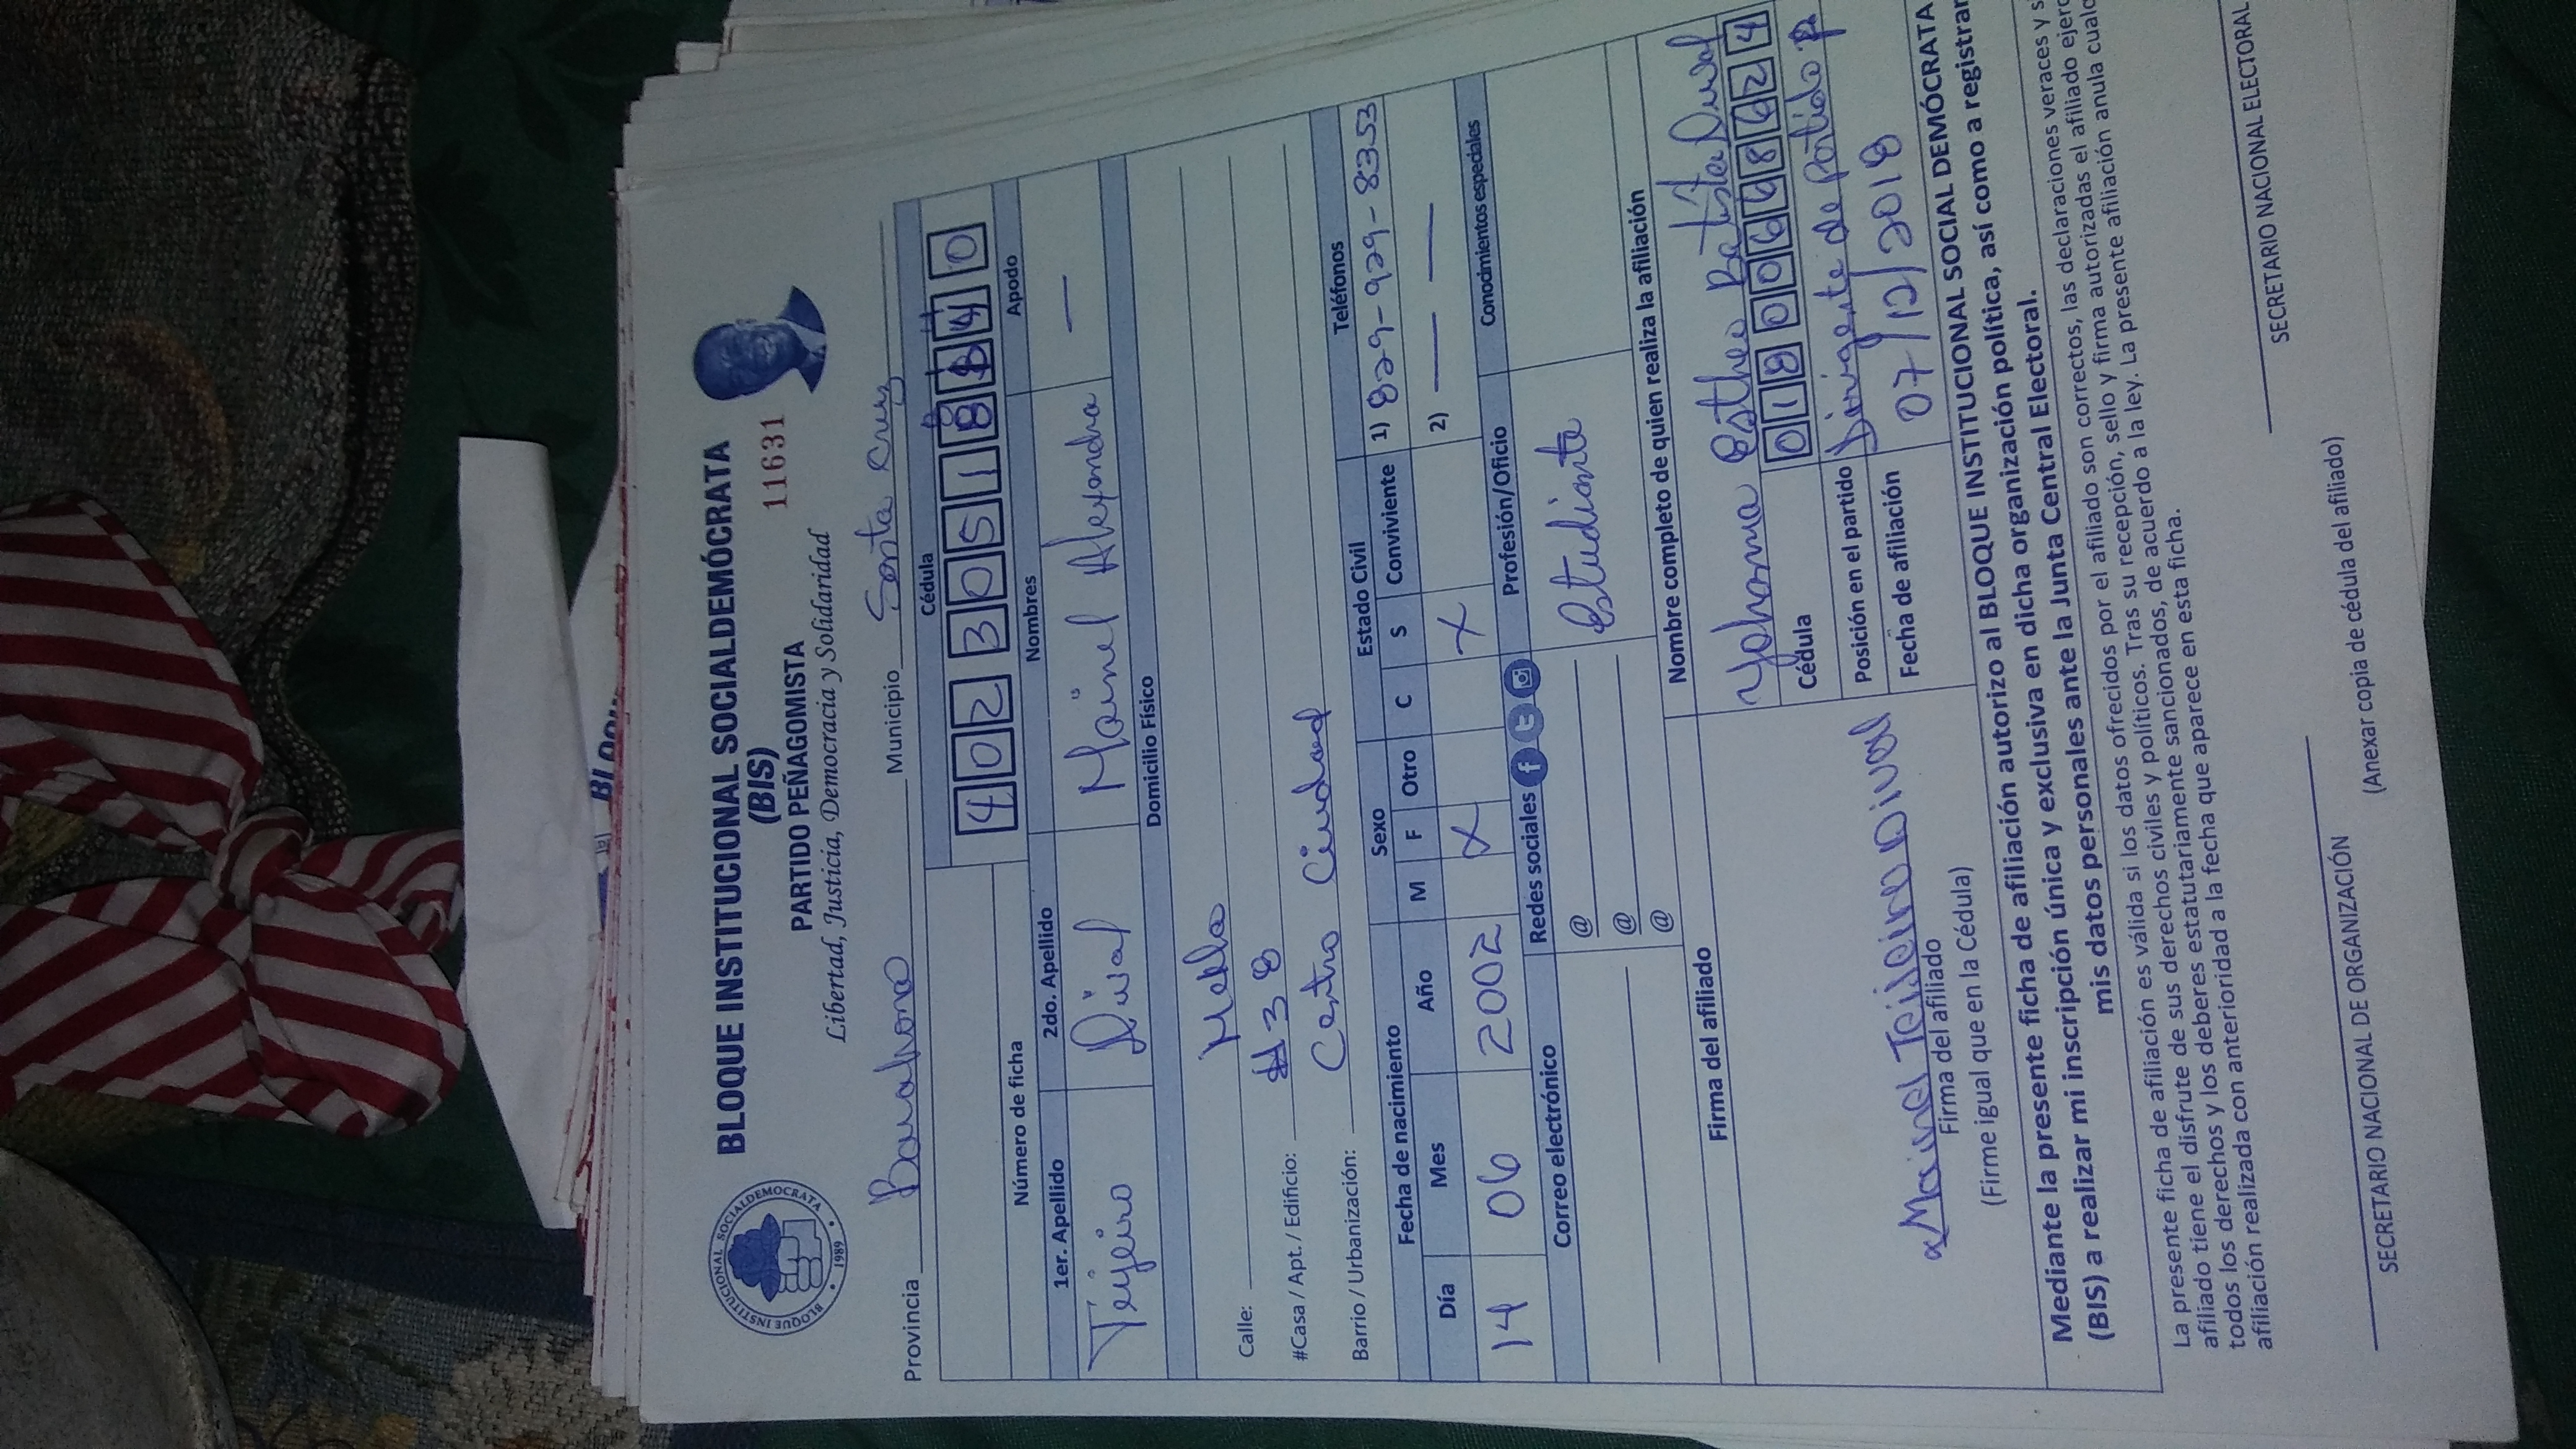 BLOQUE INSTITUCIONAL SOCIALDEMÓCRATA
(BIS)
PARTIDO PEÑAGOMISTA
11631
Libertad, Justicia, Democracia y Solidaridad
BLOQUE INSTITUCIONAL SOCIALDEMOCRATA
1989
Provincia Barahona Municipio Santa Cruz
Cédula
4 0 2 3 0 5 1 8 4 0
Número de ficha
1er. Apellido 2do. Apellido Nombres Apodo
Tejeiro Dival Mainel Alexandra —
Domicilio Físico
Calle: Mella
#Casa / Apt. / Edificio: #38
Barrio / Urbanización: Centro Ciudad
Fecha de nacimiento Sexo Estado Civil Teléfonos
Día Mes Año M F Otro C S Conviviente 1) 829-929-8353
14 06 2002 X X 2) — — —
Correo electrónico Redes sociales Profesión/Oficio Conocimientos especiales
@ Estudiante
@
@
Firma del afiliado Nombre completo de quien realiza la afiliación
Yohanna Esther Batista Duval
Cédula 0 1 8 0 0 6 9 8 6 2 4
Posición en el partido Dirigente de Partido
Fecha de afiliación 07/12/2018
Mainel Tejeiro Dival
Firma del afiliado
(Firme igual que en la Cédula)
Mediante la presente ficha de afiliación autorizo al BLOQUE INSTITUCIONAL SOCIAL DEMÓCRATA
(BIS) a realizar mi inscripción única y exclusiva en dicha organización política, así como a registrar
mis datos personales ante la Junta Central Electoral.
La presente ficha de afiliación es válida si los datos ofrecidos por el afiliado son correctos, las declaraciones veraces y s
afiliado tiene el disfrute de sus derechos civiles y políticos. Tras su recepción, sello y firma autorizadas el afiliado ejerc
todos los derechos y los deberes estatutariamente sancionados, de acuerdo a la ley. La presente afiliación anula cualq
afiliación realizada con anterioridad a la fecha que aparece en esta ficha.
SECRETARIO NACIONAL DE ORGANIZACIÓN SECRETARIO NACIONAL ELECTORAL
(Anexar copia de cédula del afiliado)